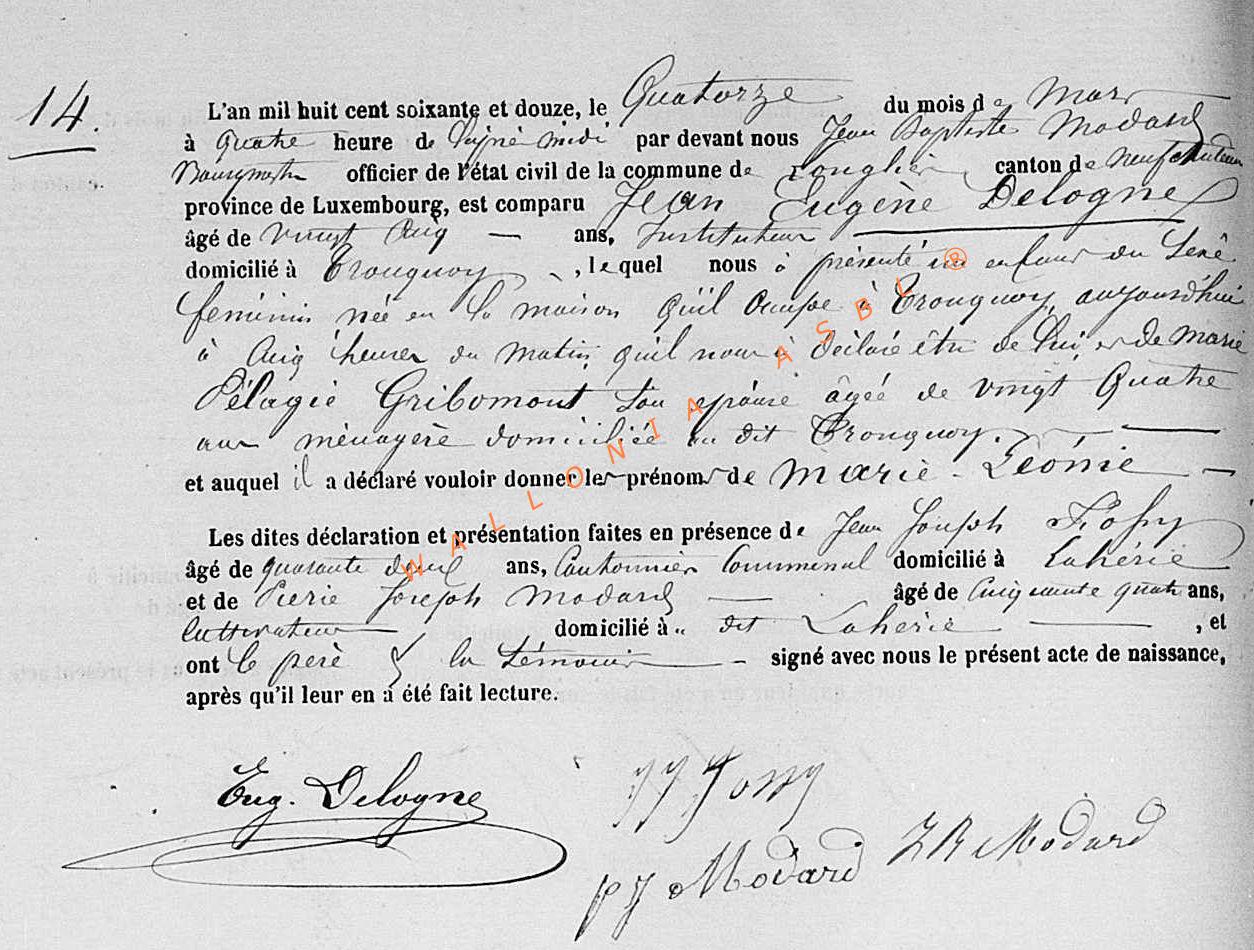 14.
L'an mil huit cent soixante et douze, le Quatorze du mois de Mars
à quatre heure de l'après midi par devant nous Jean Baptiste Modard
Bourgmestre officier de l'état civil de la commune de Longlier canton de Neufchateau
province de Luxembourg, est comparu Jean Eugène Delogne
âgé de vingt Cinq — ans, Instituteur
domicilié à Tronquoy, lequel nous a présenté un enfant du Sexe
féminin née en la maison qu'il occupe à Tronquoy, aujourd'hui
à Cinq heures du matin, qu'il nous a déclaré être de lui, et de Marie
Pélagie Gribomont Son épouse âgée de vingt Quatre
ans ménagère domiciliée au dit Tronquoy. —
et auquel il a déclaré vouloir donner les prénoms de Marie - Léonie —
Les dites déclaration et présentation faites en présence de Jean Joseph
âgé de quarante deux ans, Cantonnier Communal domicilié à Lahérie
et de Pierre Joseph Modard — âgé de Cinquante quatre ans,
Cultivateur domicilié à dit Lahérie —, et
ont le père & les témoins — signé avec nous le présent acte de naissance,
après qu'il leur en a été fait lecture.
WALLONIA ASBL ®
Eug. Delogne JJ
PJ Modard JB Modard